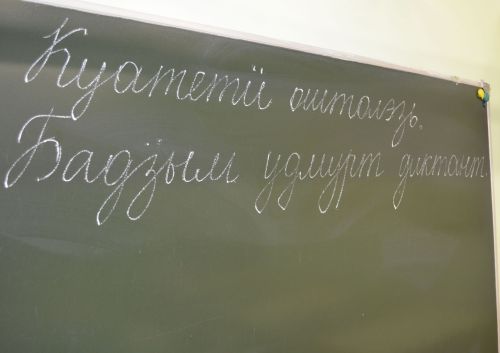 Куатетӥ оштолэзь.
Бадӟым удмурт диктант